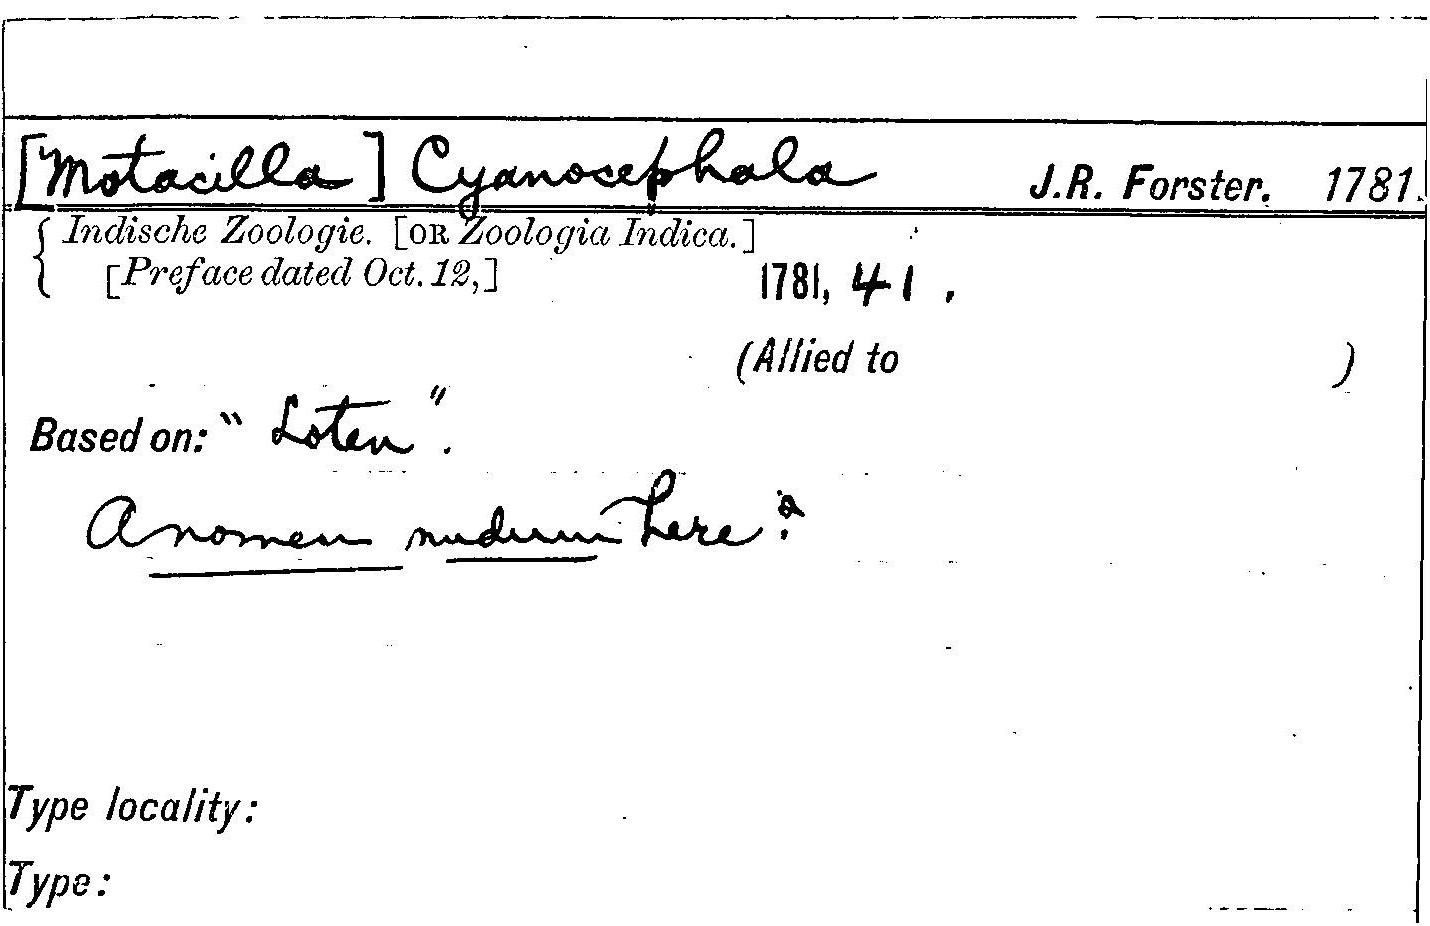 [Motacilla] Cyanocephala J.R. Forster. 1781.
Indische Zoologie. [OR Zoologia Indica.]
[Preface dated Oct. 12,] 1781, 41.
(Allied to )
Based on: "Loten".
A nomen nudum here?
Type locality:
Type: